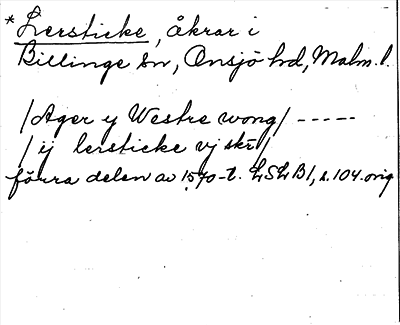 *Lersticke, åkrar i
Billinge sn, Onsjö hd, Malm. l.
/Ager y Westre wong/ -----
/ij lersticke vj skr/
förra delen av 1570-t. LSLB1, s. 104. orig